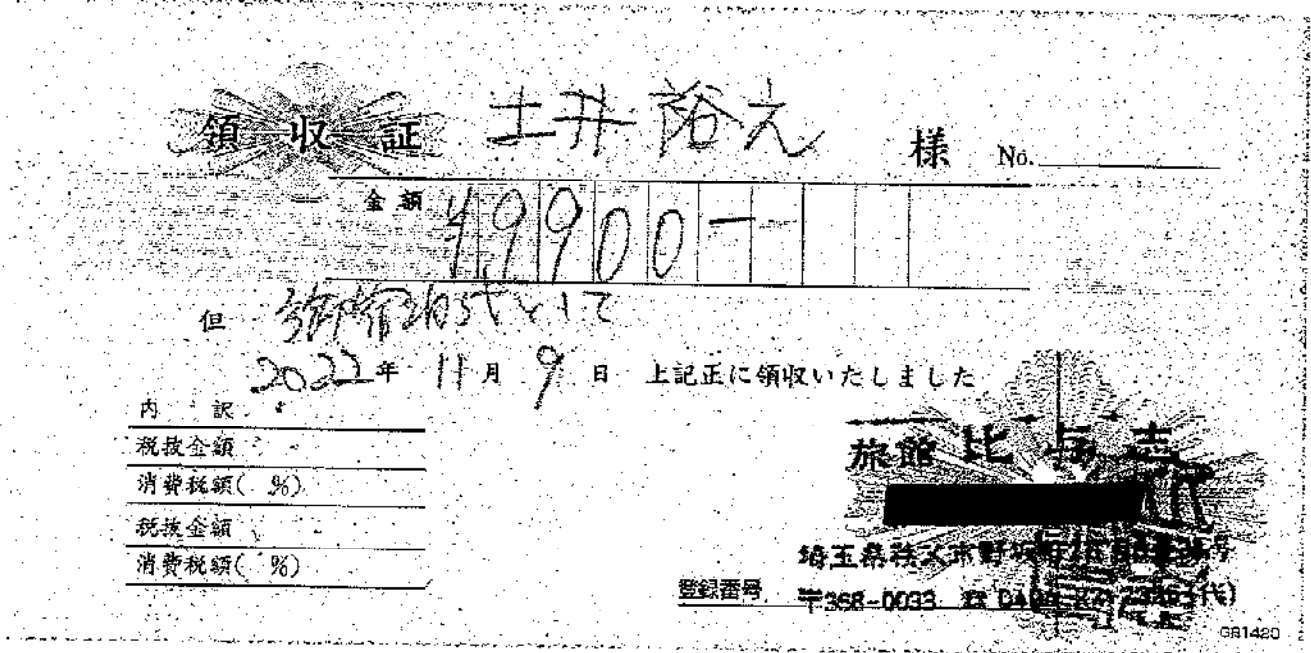 領収証 土井裕之 様 No.
金額 49900-
但 御宿泊代として
2022年 11月 9日 上記正に領収いたしました
内訳
税抜金額
消費税額( %)
税抜金額
消費税額( %)
旅館 比与志
埼玉県秩父市野坂町
登録番号
〒368-0033
GB1480